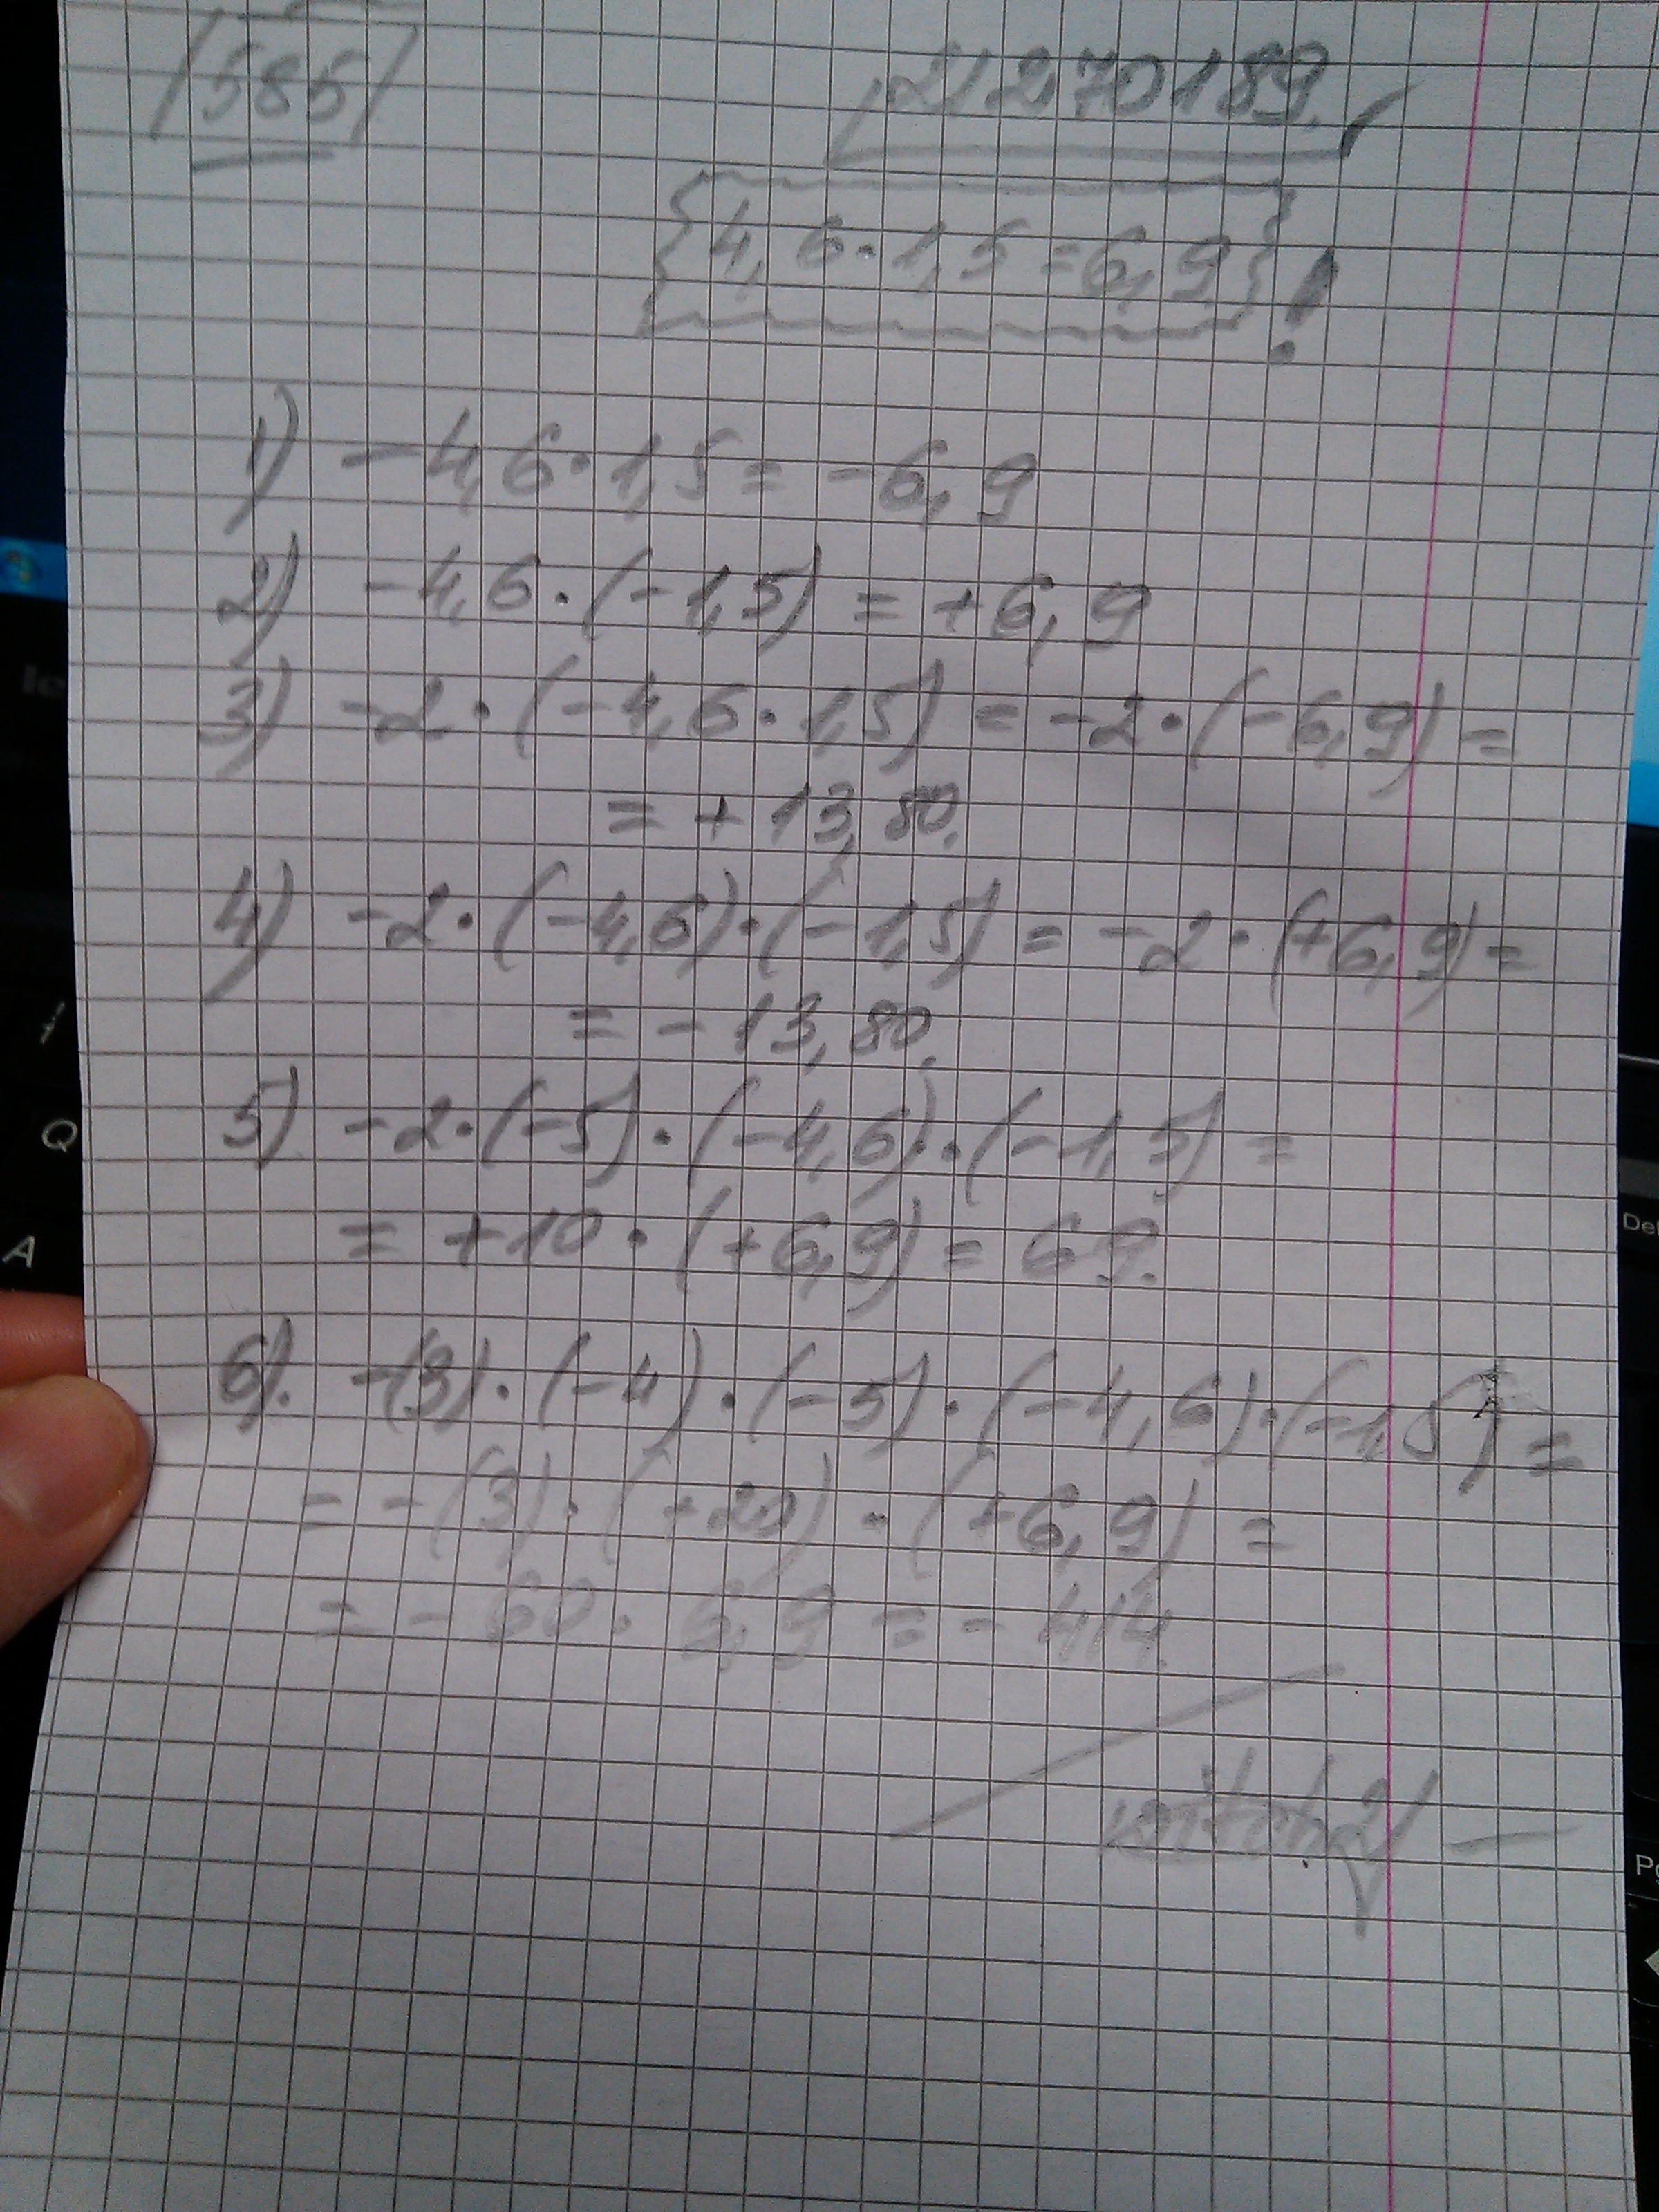 /585/
21270189.
{4,6·1,5=6,9}!
1) -4,6·1,5=-6,9
2) -4,6·(-1,5)=+6,9
3) -2·(-4,6·1,5)=-2·(-6,9)=
=+13,80.
4) -2·(-4,6)·(-1,5)=-2·(+6,9)=
=-13,80.
5) -2·(-5)·(-4,6)·(-1,5)=
=+10·(+6,9)=69.
6). -(3)·(-4)·(-5)·(-4,6)·(-1,5)=
=-(3)·(+20)·(+6,9)=
=-60·6,9=-414.
A
Q